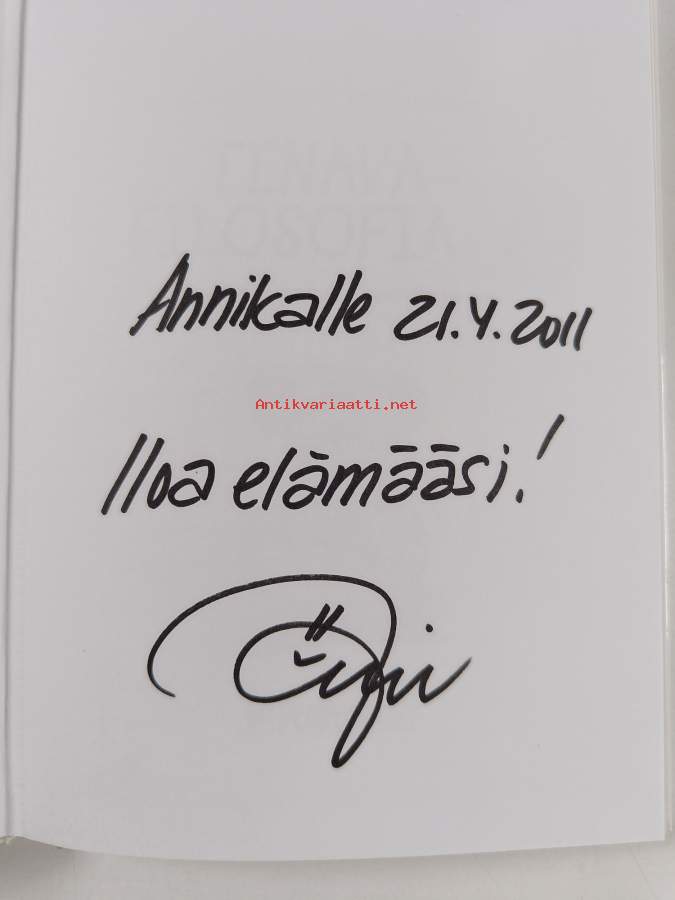 Annikalle 21.4.2011
Antikvariaatti.net
Iloa elämääsi!